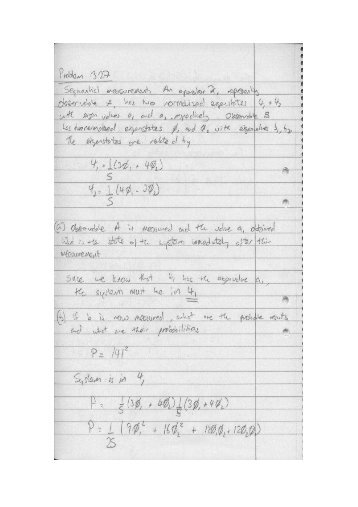 Problem 3.27
Sequential measurements. An operator Â, representing
observable A, has two normalized eigenstates ψ₁ + ψ₂
with eigen values a₁ and a₂, respectively. Observable B
has normalized eigenstates φ₁ and φ₂ with eigenvalues b₁, b₂.
The eigenstates are related by
ψ₁ = 1/5 (3φ₁ + 4φ₂)
ψ₂ = 1/5 (4φ₁ - 3φ₂)
(a) Observable A is measured and the value a₁ obtained
What is the state of the system immediately after this
measurement
Since we know that ψ₁ has the eigenvalue a₁,
the system must be in ψ₁
(b) If b is now measured, what are the possible results
and what are their probabilities
P = |ψ|²
System is in ψ₁
P = 1/5 (3φ₁ + 4φ₂) 1/5 (3φ₁ + 4φ₂)
P = 1/25 (9φ₁² + 16φ₂² + 12φ₁φ₂ + 12φ₂φ₁)